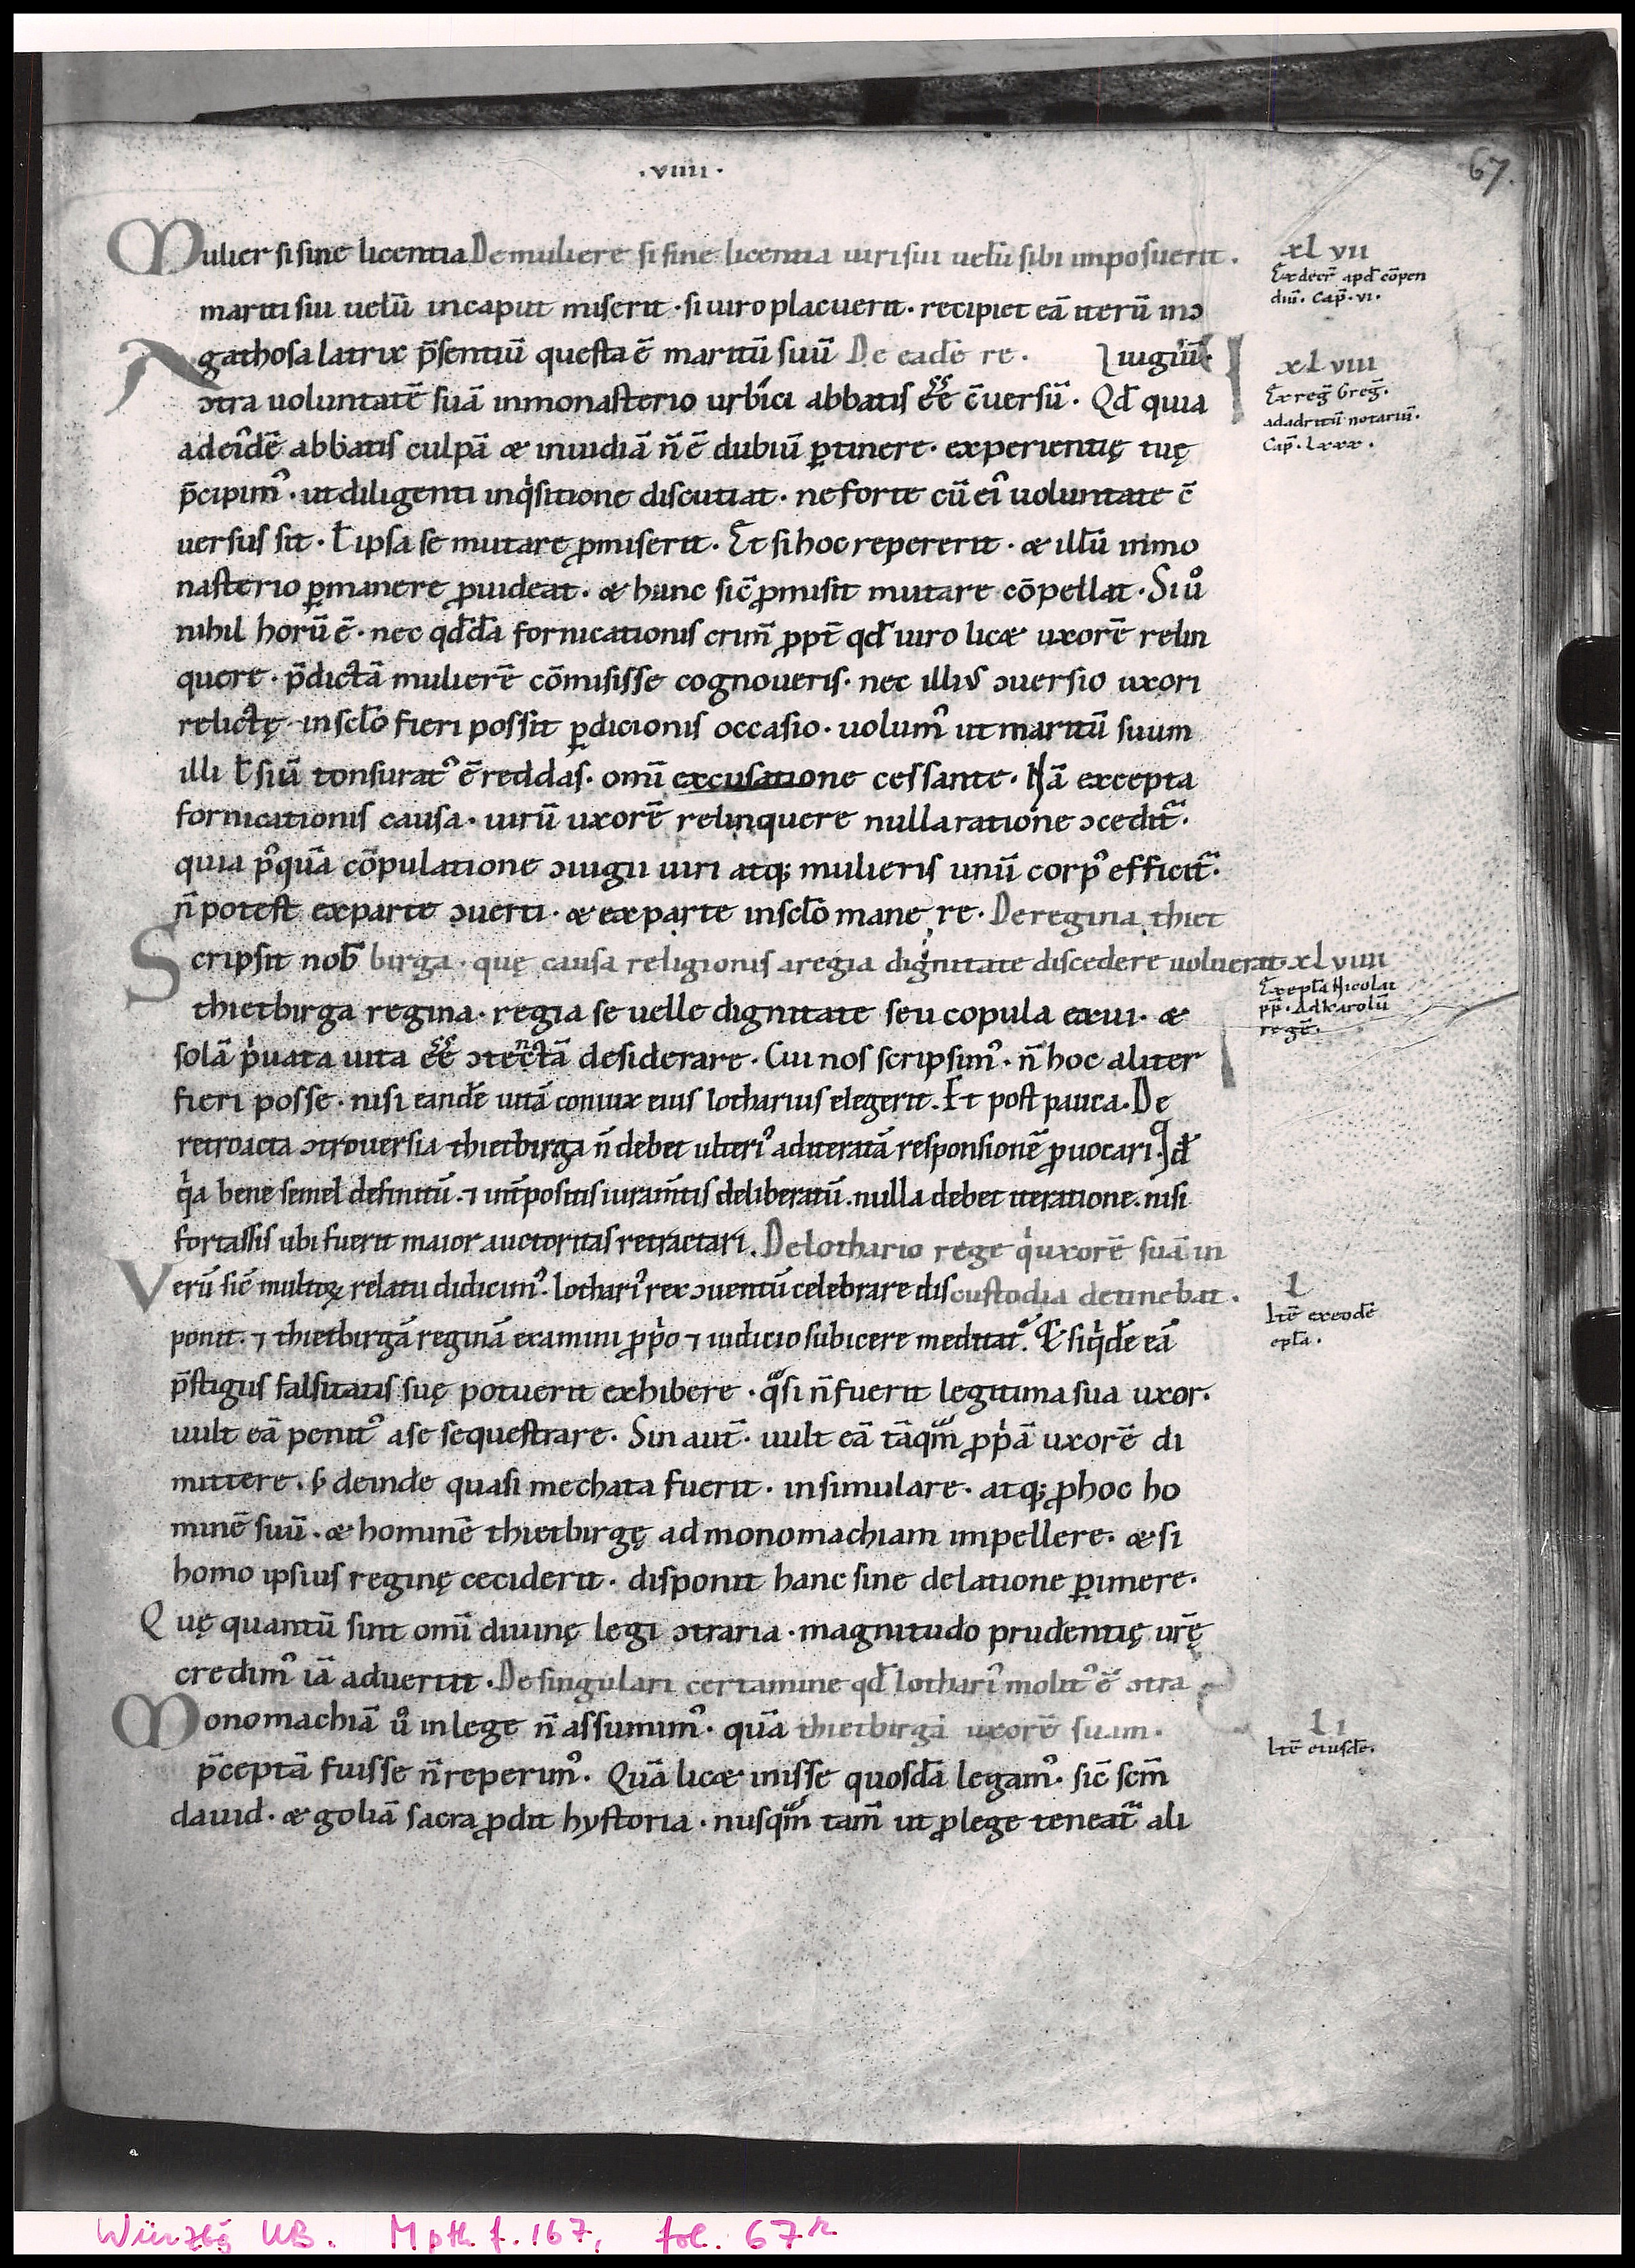 ·viiii·
67.
Mulier si sine licentia De muliere si sine licentia uiri sui uelū sibi imposuerit.
xl vii
Ex decr̄ apd̄ cōpen
diū. Cap̄. vi.
mariti sui uelū in caput miserit · si uiro placuerit · recipiet eā iterū in ɔ
Agathosa latrix p̄sentiū questa ē maritū suū De eadē re. iugiū.
xl viii
Ex reḡ Greḡ.
ad adritū notariū.
Cap̄. lxxx.
ɔtra uoluntatē suā in monasterio urbici abbatis ēē c̄uersū · Qd̄ quia
ad eiꝰdē abbatis culpā & inuidiā n̄ ē dubiū ꝑtinere · experientię tuę
p̄cipimꝰ · ut diligenti inqͥsitione discutiat · ne forte cū eiꝰ uoluntate c̄
uersus sit · ł ipsa se mutare ꝓmiserit · Et si hoc repererit · & illū in mo
nasterio ꝑmanere ꝓuideat · & hanc sic̄ ꝓmisit mutare cōpellat · Si uͦ
nihil horū ē · nec qd̄dā fornicationis crim̄ ꝓpt̄ qd̄ uiro lic& uxorē relin
quere · p̄dictā mulierē cōmisisse cognoueris · nec illiꝰ ɔuersio uxori
relictę in sclō fieri possit ꝑdicionis occasio · uolumꝰ ut maritū suum
illi ł siū tonsuratꝰ ē reddas · omī excusatione cessante · Nā excepta
fornicationis causa · uirū uxorē relinquere nulla ratione ɔcedit̄ ·
quia pꝰquā cōpulatione ɔiugii uiri atq; mulieris unū corpꝰ efficit̄ ·
n̄ potest ex parte ɔuerti · & ex parte in sclō mane re · De regina thiet
Scripsit nob̄ birga · quę causa religionis a regia dignitate discedere uoluerat. xl viiii
Ex epl̄a Nicolai
pp̄. Ad karolū
regē.
thietbirga regina · regia se uelle dignitate seu copula exui · &
solā pͥuata uita ēē ɔtectā desiderare · Cui nos scripsimꝰ · n̄ hoc aliter
fieri posse · nisi eandē uitā coniux eius lotharius elegerit. Et post pauca. De
retroacta ɔtrouersia thietbirga n̄ debet ulteriꝰ ad iteratā responsionē ꝓuocari. Id̄
qͥa bene semel definitū. ⁊ int̄positis iuram̄tis deliberatū. nulla debet iteratione. nisi
fortassis ubi fuerit maior auctoritas retractari. De lothario rege qͥ uxorē suā in
Verū sic̄ multoꝝ relatu didicimꝰ · lothariꝰ rex ɔuentū celebrare dis custodia detinebat.
l
Itē ex eodē
epl̄a.
ponit. ⁊ thietbirgā reginā examini ꝓpͥo ⁊ iudicio subicere meditat̄. Et siqͥdē eā
p̄stigiis falsitatis suę potuerit exhibere · qͦsi n̄ fuerit legitima sua uxor ·
uult eā penitꝰ a se sequestrare · Sin aut̄ · uult eā tāqm̄ ꝓpͥā uxorē di
mittere · s; deinde quasi mechata fuerit · insimulare · atq; ꝓ hoc ho
minē suū · & hominē thietbirgę ad monomachiam impellere · & si
homo ipsius reginę ceciderit · disponit hanc sine delatione ꝑimere ·
Quę quantū sint omī diuinę legi ɔtraria · magnitudo prudentię ur̄ę
credimꝰ iā aduertit · De singulari certamine qd̄ lothariꝰ molitꝰ ē ɔtra
Monomachiā uͦ in lege n̄ assumimꝰ · quā thietbirgā uxorē suam.
li
Itē eiusdē.
p̄ceptā fuisse n̄ reperimꝰ · Quā lic& inisse quosdā legamꝰ · sic̄ scm̄
dauid · & goliā sacra ꝓdit hystoria · nusqm̄ tam̄ ut ꝓ lege teneat̄ ali
Würzbg UB. M p th. f. 167, fol. 67r